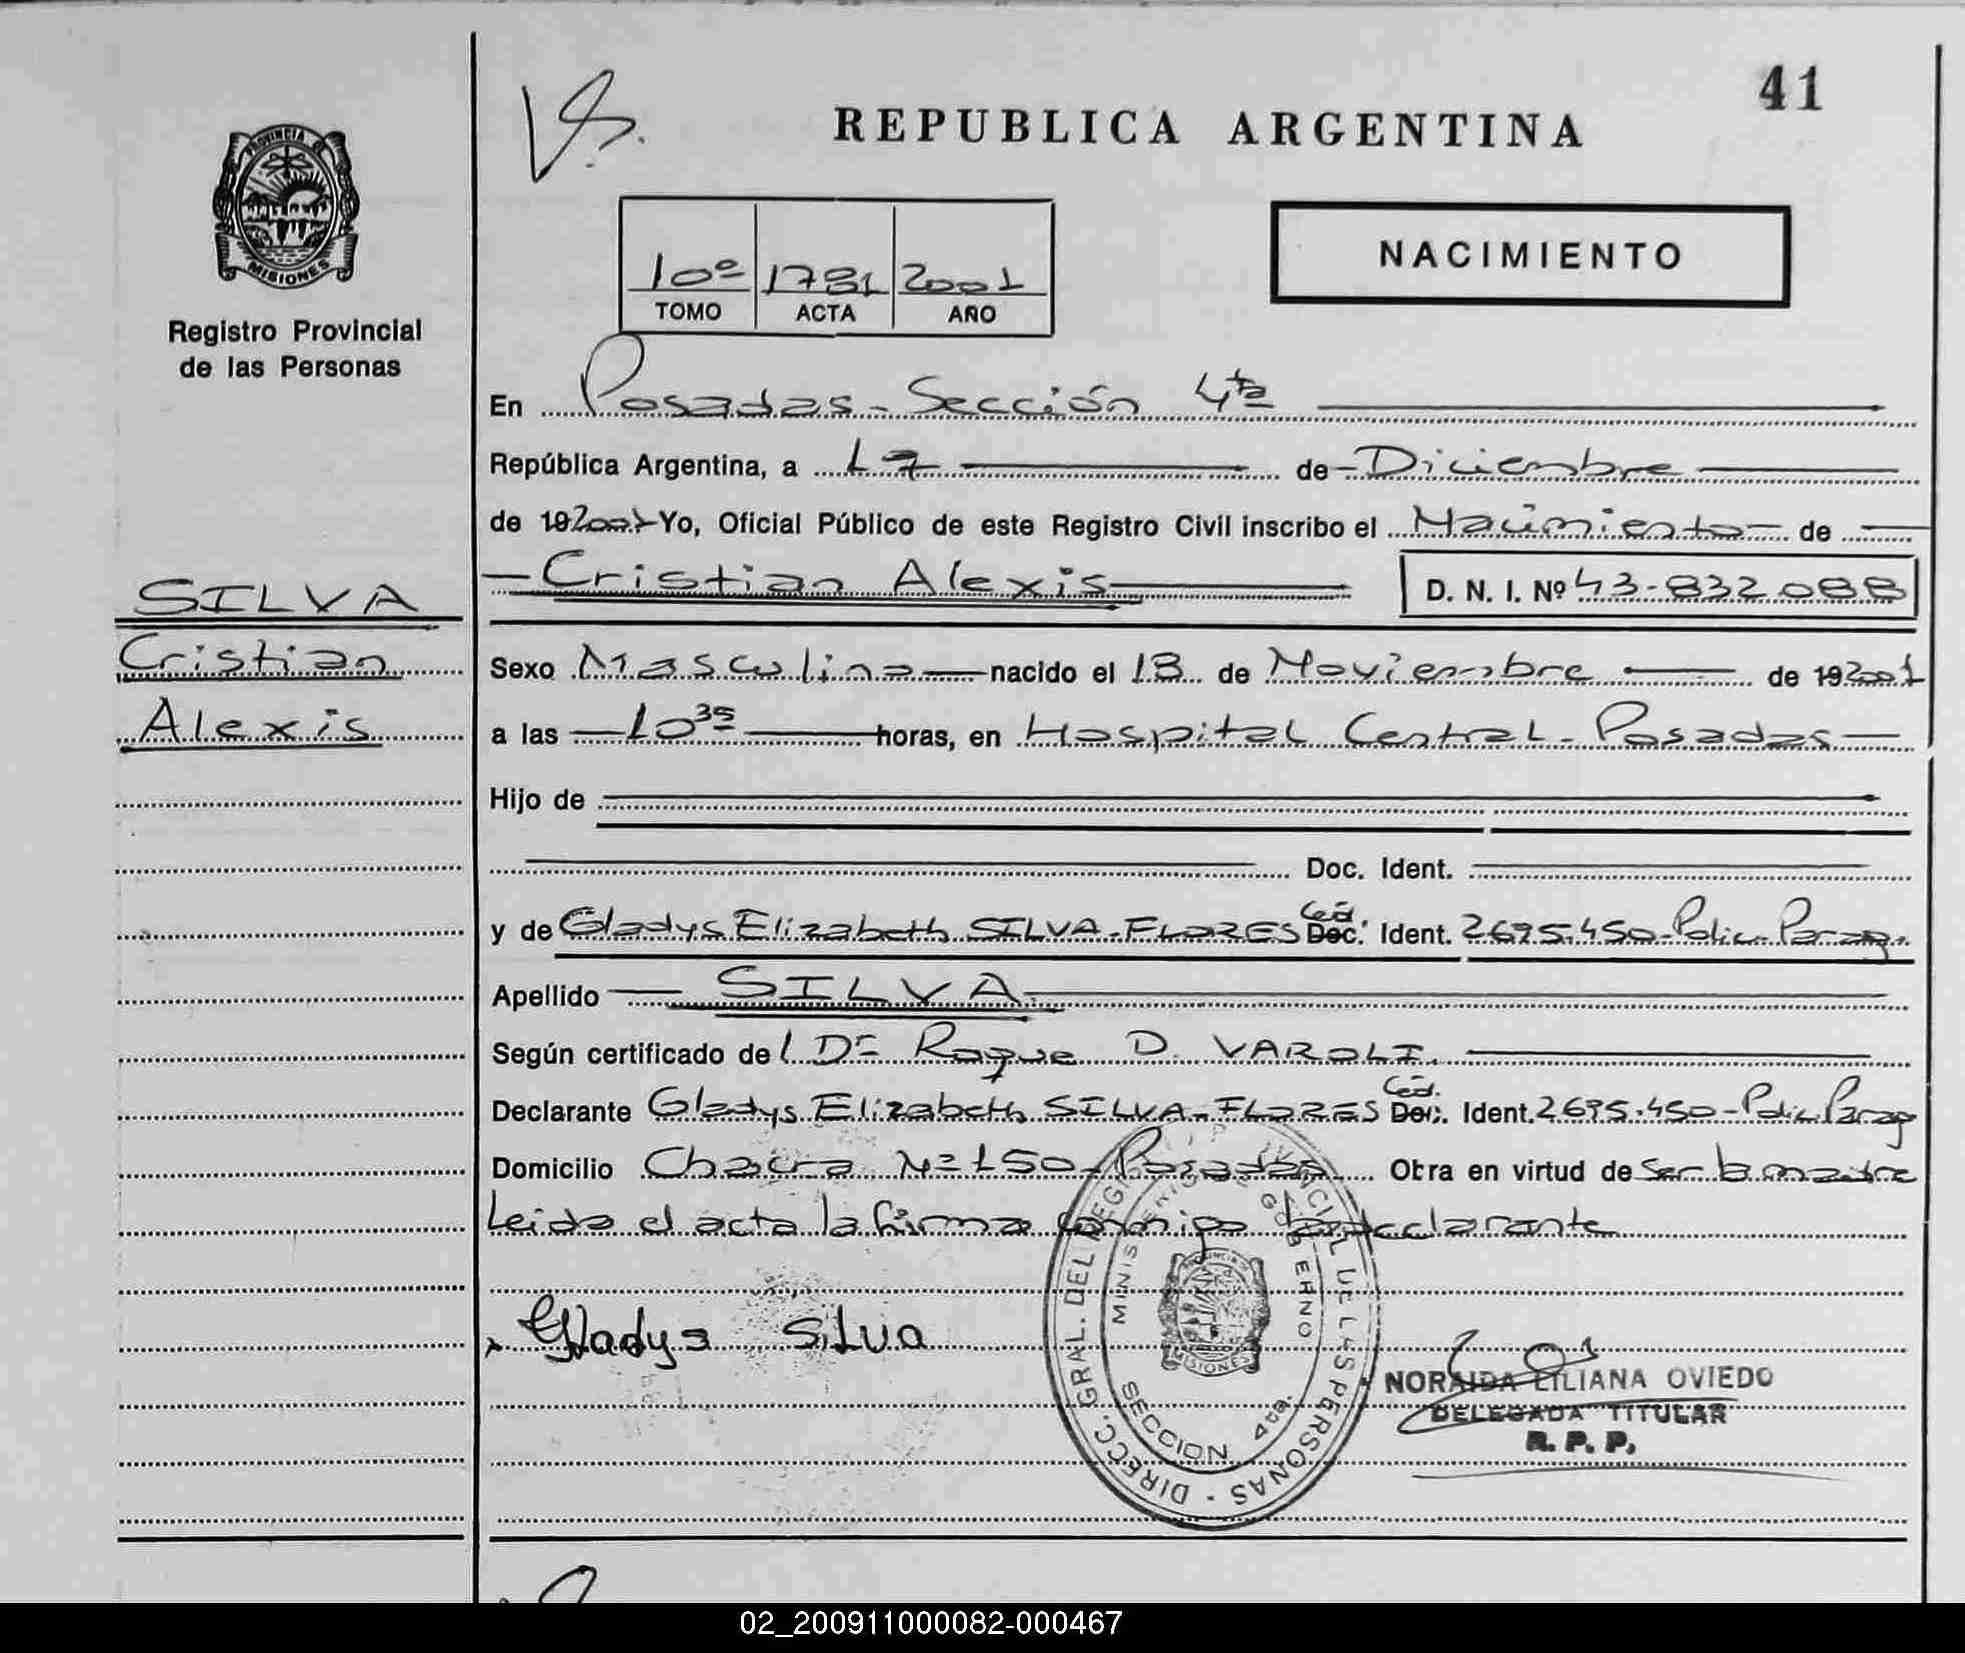 41
REPUBLICA ARGENTINA
PROVINCIA DE
MISIONES
Registro Provincial
de las Personas
10º 1781 2001
TOMO ACTA AÑO
NACIMIENTO
En Posadas - Sección 4ta
República Argentina, a 17 de Diciembre
de 19 2001 Yo, Oficial Público de este Registro Civil inscribo el Nacimiento de
Cristian Alexis D. N. I. Nº 43-832.088
SILVA
Cristian
Alexis
Sexo Masculino nacido el 13 de Noviembre de 19 2001
a las 10 35 horas, en Hospital Central - Posadas
Hijo de
Doc. Ident.
y de Gladys Elizabeth SILVA-FLORES Céd. Doc. Ident. 2695.450-Polic. Parag.
Apellido SILVA
Según certificado del Dr Roque D. VAROLI.
Declarante Gladys Elizabeth SILVA-FLORES Céd. Doc. Ident. 2695.450-Polic. Parag
Domicilio Chacra Nº 150-Posadas Obra en virtud de ser la madre
Leida el acta la firma conmigo la declarante
Gladys Silva
DIRECC. GRAL. DEL REGISTRO PROVINCIAL DE LAS PERSONAS
MINISTERIO DE GOBIERNO
MISIONES
SECCION 4ta.
NORAIDA LILIANA OVIEDO
DELEGADA TITULAR
R. P. P.
02_200911000082-000467